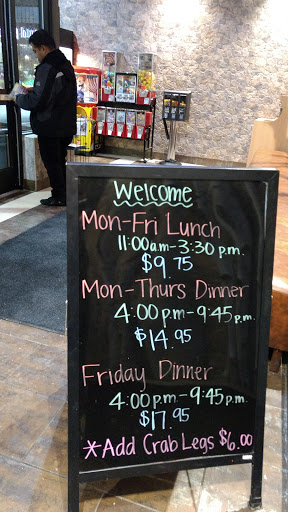 Welcome
Mon-Fri Lunch
11:00am-3:30 p.m.
$9.75
Mon-Thurs Dinner
4:00 p.m-9:45 p.m.
$14.95
Friday Dinner
4:00 p.m-9:45 p.m.
$17.95
*Add Crab Legs $6.00